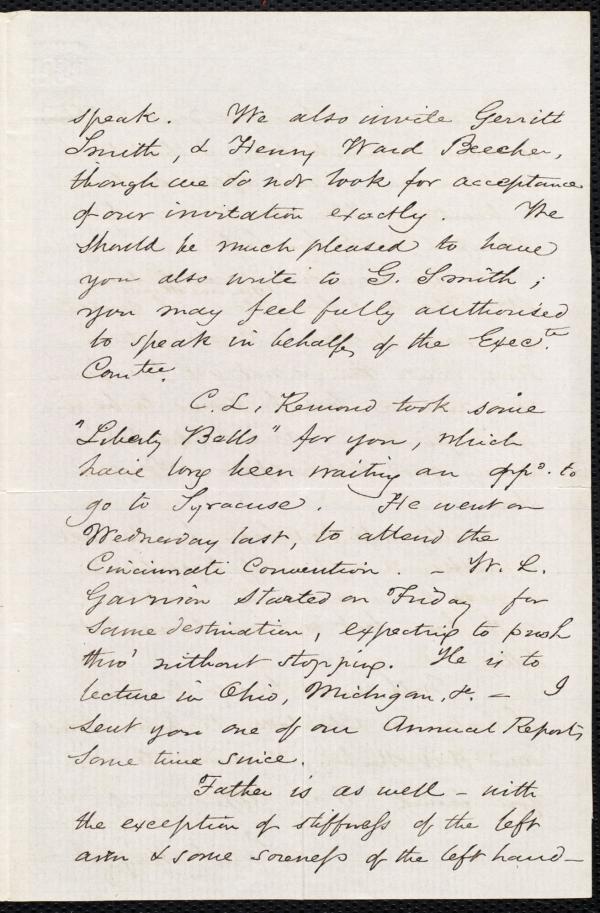 speak. We also invite Gerritt
Smith, & Henry Ward Beecher,
though we do not look for acceptance
of our invitation exactly. We
should be much pleased to have
you also write to G. Smith;
you may feel fully authorised
to speak in behalf of the Exec.te
Comtee.
C. L. Remond took some
"Liberty Bells" for you, which
have long been waiting an oppo. to
go to Syracuse. He went on
Wednesday last, to attend the
Cincinnati Convention. - W. L.
Garrison started on Friday for
same destination, expecting to push
thro' without stopping. He is to
lecture in Ohio, Michigan, &c. - I
sent you one of our Annual Reports,
some time since.
Father is as well - with
the exception of stiffness of the left
arm & some soreness of the left hand -